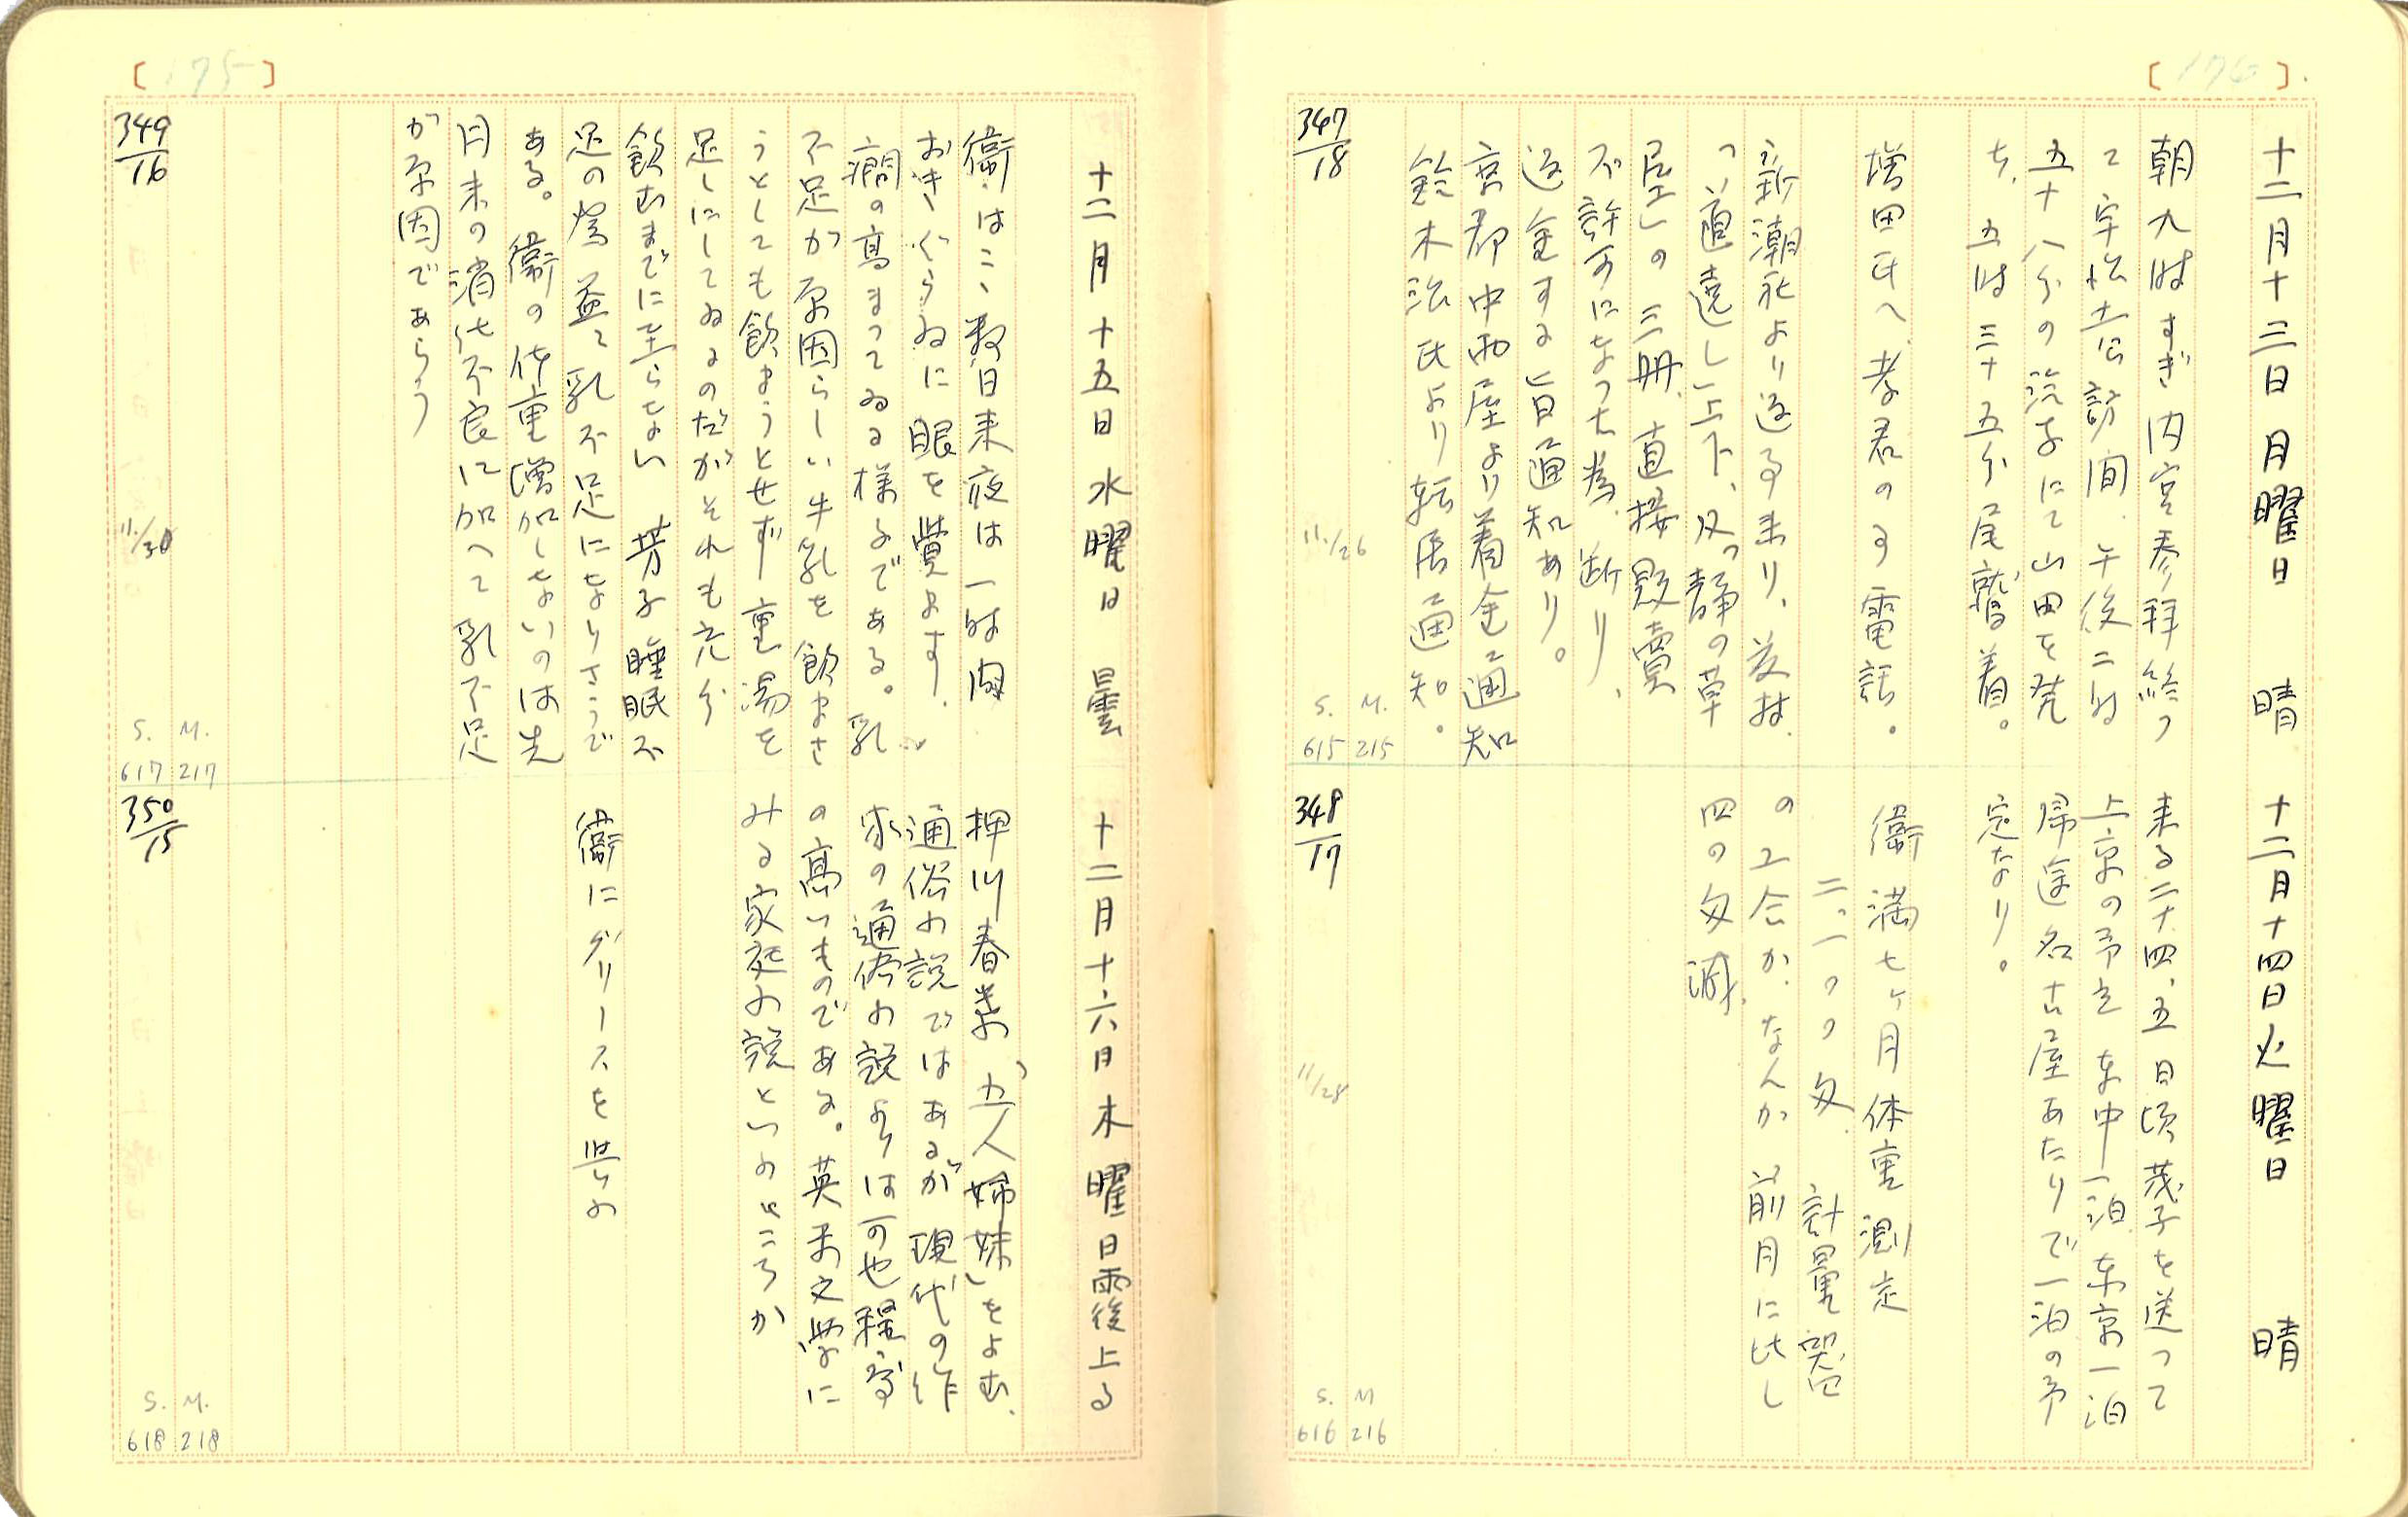 [176]
十二月十三日 月曜日 晴
朝九時すぎ内宮参拝終つ
て宇治土公訪問、午後二時
五十八分の汽車にて山田を発
ち、五時三十五分尾鷲着。
増田氏へ孝君の事電話。
新潮社より返事来り、義林
「道遠し」上下、及「静の草
屋」の三冊、直接販賣
不許可になつた為、断り、
返金する旨通知あり。
京都中西屋より着金通知
鈴木治氏より転居通知。
347/18
11/26
S. M.
615 215
十二月十四日 火曜日 晴
来る二十四、五日頃茂子を送つて
上京の予定 車中一泊 東京一泊
帰途名古屋あたりで一泊の予
定なり。
衛 満七ヶ月体重測定
二、一〇〇匁 計量器
の工合か、なんか 前月に比し
四〇匁減。
348/17
11/28
S. M
616 216
[175]
十二月十五日 水曜日 曇
衛はこゝ数日来夜は一時間
おきぐらゐに眼を覺ます。
癇の高まつてゐる様子である。乳
不足が原因らしい牛乳を飲まさ
うとしても飲まうとせず 重湯を
足しにしてゐるのだがそれも充分
飲むまでに至らない 芳子睡眠不
足の為益々乳不足になりさうで
ある。衛の体重増加しないのは先
月末の消化不良に加へて乳不足
が原因であらう
349/16
11/30
S. M.
617 217
十二月十六日 木曜日 雨後上る
押川春浪「五人姉妹」をよむ、
通俗小説ではあるが現代の作
家の通俗小説よりは可也程度
の高いものである。英米文學に
みる家庭小説といふところか
衛にグリースを與ふ
350/15
S. M.
618 218